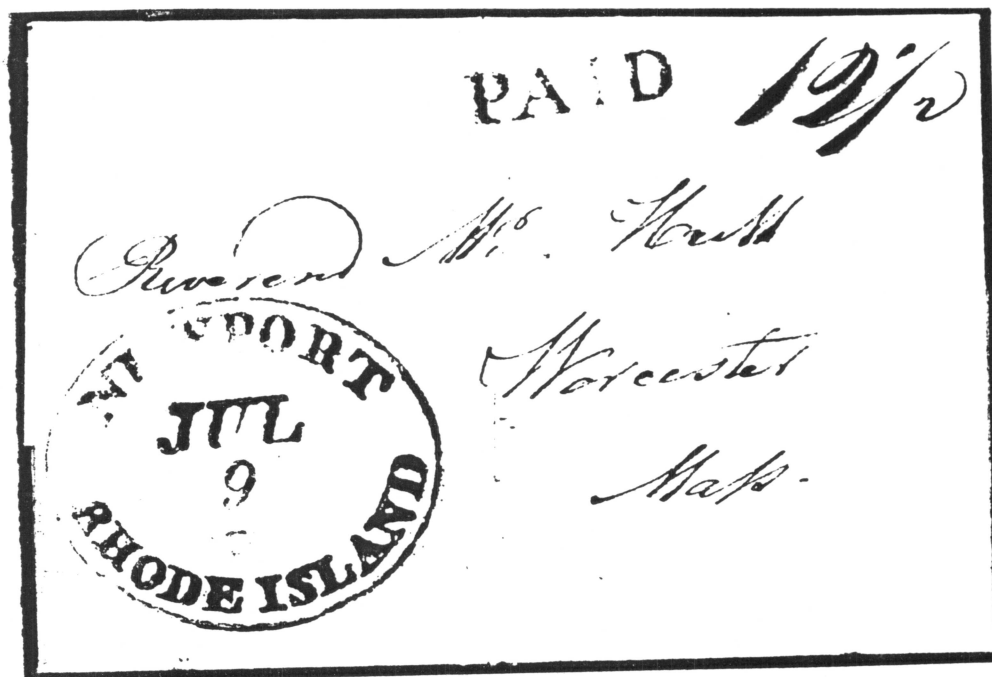 PAID 12 1/2
Reverend Mr. Hull
Worcester
Mass.
NEWPORT
JUL
9
RHODE ISLAND